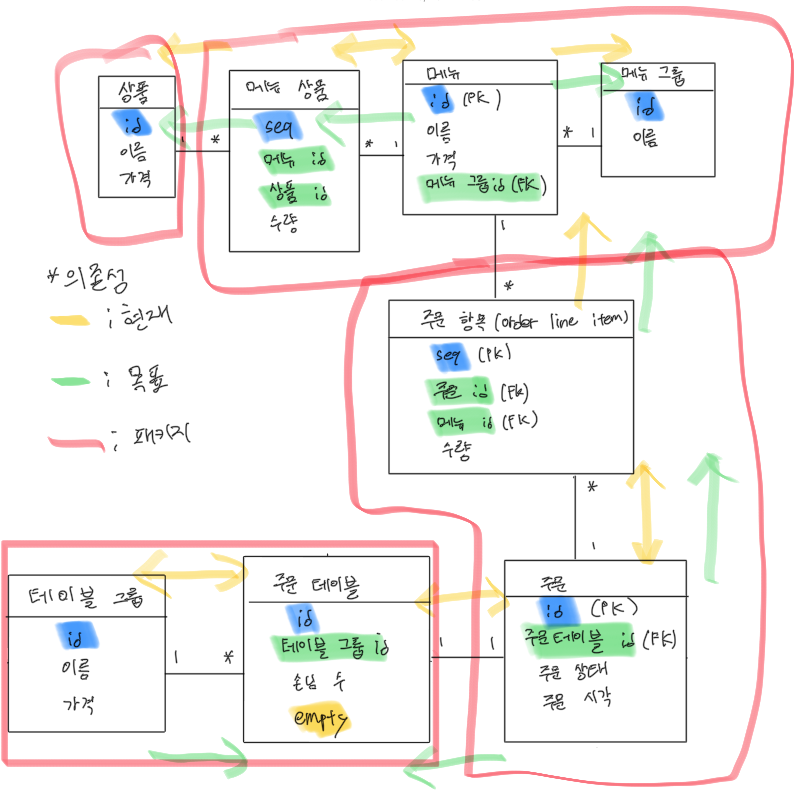 상품
id
이름
가격
메뉴 상품
seq
메뉴 id
상품 id
수량
메뉴
id (PK)
이름
가격
메뉴 그룹id (FK)
메뉴 그룹
id
이름
1
*
*
1
*
1
1
*
* 의존성
; 현재
; 목표
; 패키지
주문 항목 (order line item)
seq (PK)
주문 id (FK)
메뉴 id (FK)
수량
*
1
테이블 그룹
id
이름
가격
1
*
주문 테이블
id
테이블 그룹 id
손님 수
empty
1
1
주문
id (PK)
주문테이블 id (FK)
주문 상태
주문 시각